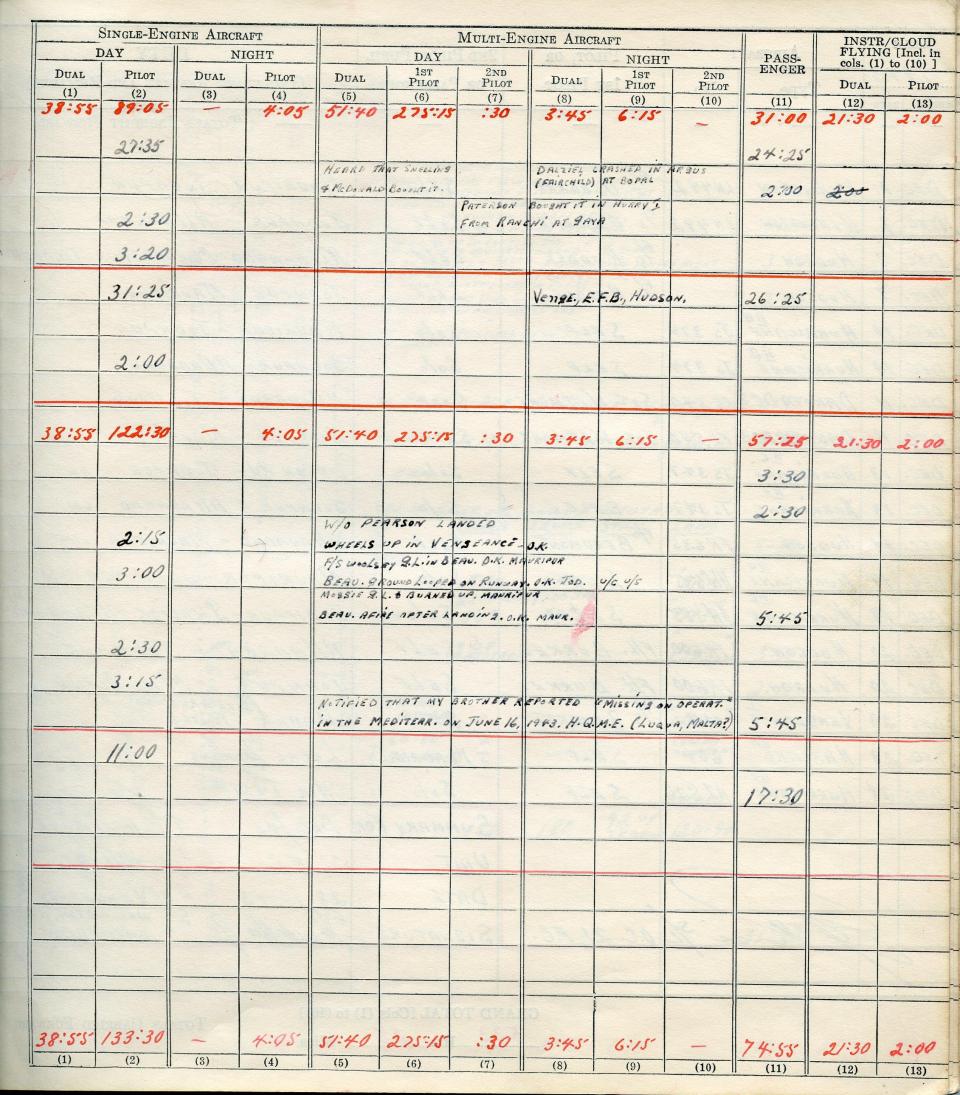 SINGLE-ENGINE AIRCRAFT MULTI-ENGINE AIRCRAFT PASS-ENGER INSTR/CLOUD FLYING [Incl. in cols. (1) to (10) ]
DAY NIGHT DAY NIGHT
DUAL PILOT DUAL PILOT DUAL 1ST PILOT 2ND PILOT DUAL 1ST PILOT 2ND PILOT DUAL PILOT
(1) (2) (3) (4) (5) (6) (7) (8) (9) (10) (11) (12) (13)
38:55 89:05 — 4:05 51:40 275:15 :30 3:45 6:15 — 31:00 21:30 2:00
27:35 24:25
HEARD THAT SNELLING DALZIEL CRASHED IN ARGUS
& McDONALD BOUGHT IT. (FAIRCHILD) AT BOPAL 2:00 2:00
PATERSON BOUGHT IT IN HURRY I
2:30 FROM RANCHI AT GAYA
3:20
31:25 VENGE., E.F.B., HUDSON. 26:25
2:00
38:55 122:30 — 4:05 51:40 275:15 :30 3:45 6:15 — 57:25 21:30 2:00
3:30
2:30
W/O PEARSON LANDED
2:15 WHEELS UP IN VENGEANCE - O.K.
F/S WOOLSEY G.L. IN BEAU. O.K. MAURIPUR
3:00 BEAU. GROUND LOOPED ON RUNWAY. O.K. JOD. U/S U/S
MOSSIE G.L. & BURNED UP. MAURIPUR
BEAU. AFIRE AFTER LANDING. O.K. MAUR. 5:45
2:30
3:15
NOTIFIED THAT MY BROTHER REPORTED "MISSING ON OPERAT."
IN THE MEDITERR. ON JUNE 16, 1943. H.Q.M.E. (LUQUA, MALTA?) 5:45
11:00
17:30
38:55 133:30 — 4:05 51:40 275:15 :30 3:45 6:15 — 74:55 21:30 2:00
(1) (2) (3) (4) (5) (6) (7) (8) (9) (10) (11) (12) (13)